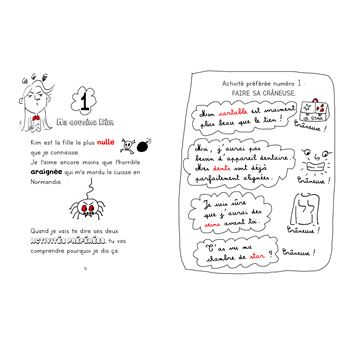 1
Ma cousine Kim
Kim est la fille le plus nulle
que je connaisse.
Je l'aime encore moins que l'horrible
araignée qui m'a mordu la cuisse en
Normandie.
Quand je vais te dire ses deux
ACTIVITÉS PRÉFÉRÉES, tu vas
comprendre pourquoi je dis ça
Activité préférée numéro 1 :
FAIRE SA CRÂNEUSE.
Mon cartable est vraiment
plus beau que le tien !
STAR
Crâneuse !
Moi, j'aurai pas
besoin d'appareil dentaire.
Mes dents sont déjà
parfaitement alignées.
Crâneuse !
Je suis sûre
que j'aurai des
seins avant toi.
Crâneuse !
T'as vu ma
chambre de star ?
Crâneuse !